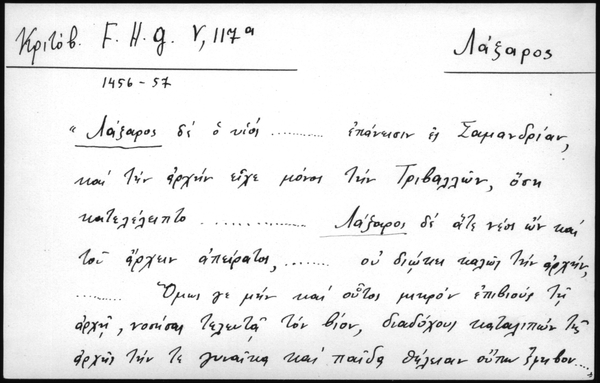 Κριτόβ. F. H. g. V, 117ᵃ
Λάξαρος
1456-57
"Λάξαρος δέ ὁ υἱός ........... ἐπάνεισιν ἐς Σαμανδρίαν,
καί τήν ἀρχήν εἶχε μόνος τήν Τριβαλλῶν, ὅση
κατελέλειπτο .............. Λάξαρος δέ ἅτε νέος ὤν καί
τοῦ ἄρχειν ἀπείρατος, ........ οὐ διώκει καλῶς τήν ἀρχήν,
......... Ὅμως γε μήν καί οὗτος μικρόν ἐπιβιούς τῇ
ἀρχῇ, νοσήσας τελευτᾷ τόν βίον, διαδόχους καταλιπών τῆς
ἀρχῆς τήν τε γυναῖκα καί παῖδα θήλειαν οὔπω ἔφηβον....